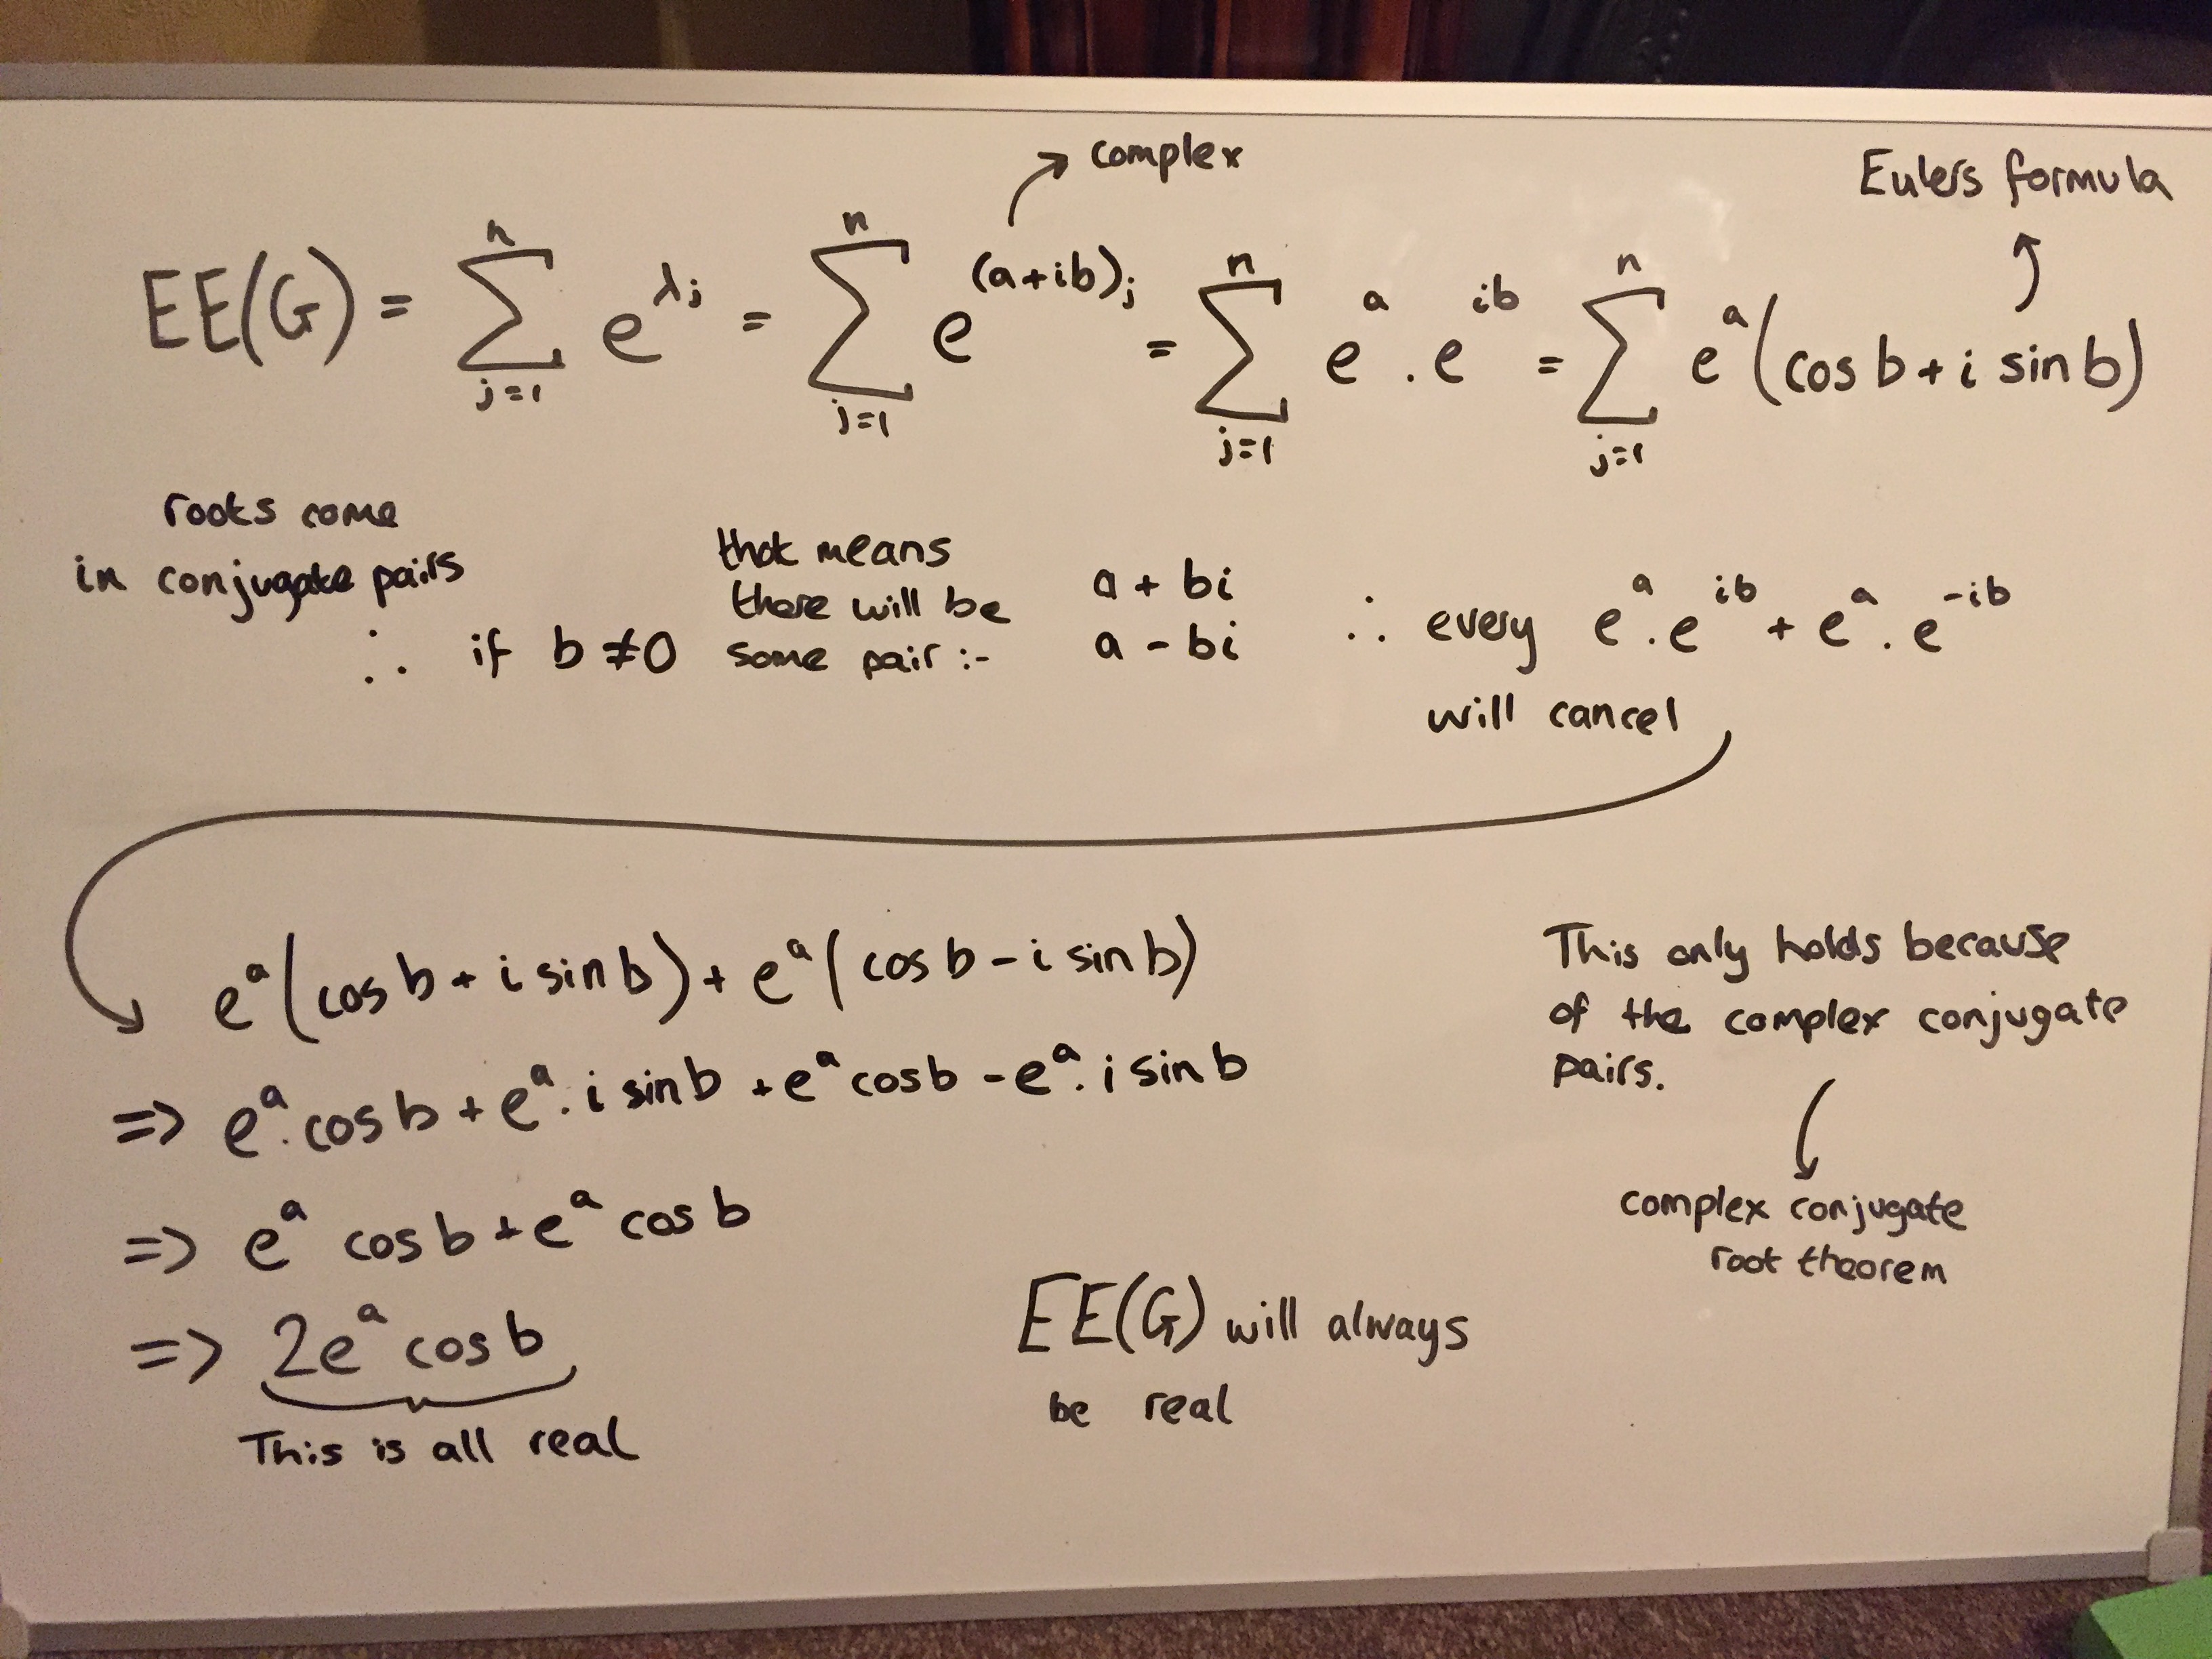 complex
Eulers formula
EE(G) = ∑_{j=1}^{n} e^{λj} = ∑_{j=1}^{n} e^{(a+ib)j} = ∑_{j=1}^{n} e^{a} . e^{ib} = ∑_{j=1}^{n} e^{a}(cos b + i sin b)
roots come
in conjugate pairs
∴ if b ≠ 0
that means
there will be
some pair :-
a + bi
a - bi
∴ every e^{a} . e^{ib} + e^{a} . e^{-ib}
will cancel
e^{a}(cos b + i sin b) + e^{a}(cos b - i sin b)
=> e^{a}. cos b + e^{a}. i sin b + e^{a} cos b - e^{a}. i sin b
=> e^{a} cos b + e^{a} cos b
=> 2e^{a} cos b
This is all real
This only holds because
of the complex conjugate
pairs.
complex conjugate
root theorem
EE(G) will always
be real